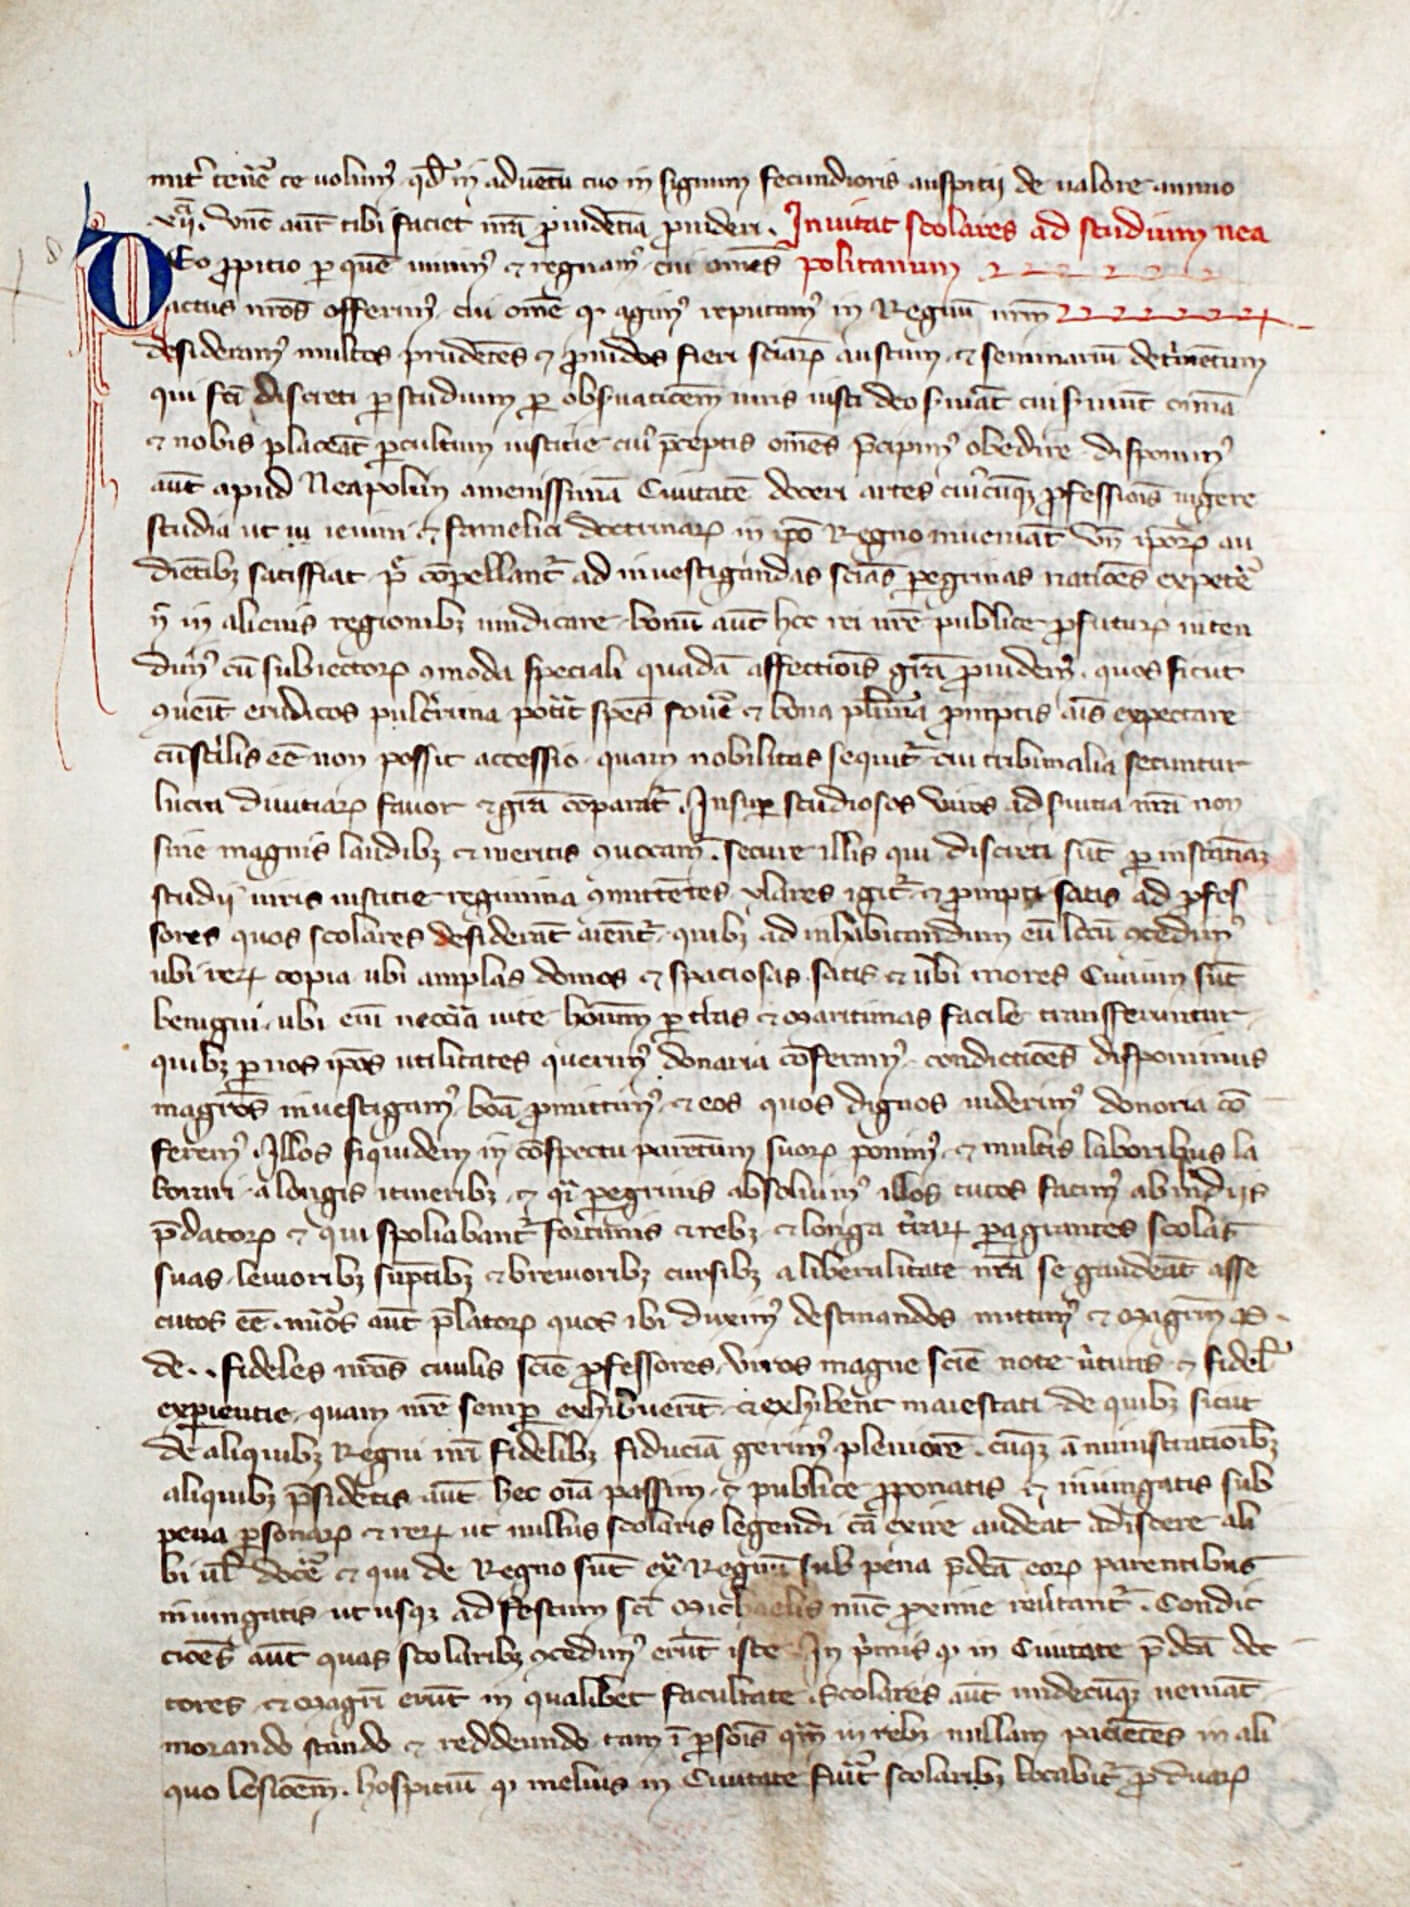 mit᷑ tenẽ te volum᷒ qđ in aduẽtu tuo in signum fecundioris auspitij de valore annuo
vñe aũt tibi faciet nr̃a ꝓuidẽtia ꝓuideri. Inuitat scolares ad studium nea
DEo ꝓpitio ꝑ quẽ viuim᷒ ⁊ regnam᷒ cui om̃es politanum
actus nr̃os offerim᷒ cui om̃e ꝙ agim᷒ reputam᷒ in Regnũ nr̃m
desideram᷒ multos prudẽtes ⁊ ꝓuidos fieri sciaꝝ austum ⁊ seminariũ
qui fc̃i discreti ꝑ studium ꝑ obẜuaticẽm iuris iusti deo ẜuiãt cui ẜuiũt om̃ia
⁊ nobis placeãt ꝑ cultum iustitie cui᷒ p̃ceptis om̃es p̃cipim᷒ obedire disponim᷒
aũt apud Neapolim amenissimã Ciuitatẽ doceri artes cui᷒cũqꝫ ꝓfessiõis uigere
studia ut ieiuni ⁊ famelici doctrinaꝝ in ip̃o Regno inueniãt vñ ip̃oꝝ au
dientibꝫ satisfiat compellant᷑ ad inuestigandas sciãs ꝑegrinas natiões expete᷑
n̄ in alienis regionibꝫ mẽdicare bonũ aũt hoc rei nr̃e publice ꝓfuturũ inten
dim᷒ cũ subiectoꝝ ꝯmoda speciali quadã affectiõis gr̃a ꝓuidem᷒. quos sicut
ꝯueĩt eruditos pulc᷑rima pot᷑it spẽs foue᷑ ⁊ bona plurima promptis aĩs expectare
cũ st᷑ilis eẽ non possit accessio quam nobilitas sequit᷑ cui tribunalia secuntur
lucra diuitiaꝝ fauor ⁊ gr̃a comparat᷑. Insuꝑ studiosos viros ad ẜuitia nr̃a non
sine magnis laudibꝫ ⁊ meritis ꝯuocam᷒. secure illis qui discreti sũt ꝑ instãtiaꝫ
studij iuris iustitie regimina ꝯmittẽtes ylares igit᷑ ⁊ prompti satis ad ꝓfes
sores quos scolares desiderãt aĩent᷑. quibꝫ ad inhabitandum eũ locũ ꝯcedim᷒
ubi reꝝ copia ubi amplas domos ⁊ spaciosas satis ⁊ ubi mores Ciuium sũt
benigni. ubi eñ necc̃ia uite hoĩum ꝑ t᷑ras ⁊ maritimas facile transferuntur
quibꝫ ꝑ nos ip̃os utilitates querim᷒ donaria cõferim᷒. condictiões disponimus
magr̃os inuestigam᷒ boã ꝓmittim᷒ ⁊ eos quos dignos viderim᷒ donoria cõ
ferem᷒. Illos siquidem in cõspectu parẽtum suoꝝ ponim᷒. ⁊ multis laboribus la
borari a longis itineribꝫ ⁊ q̃i ꝑegrinis absoluim᷒ illos tutos facim᷒ ab insidijs
p̃datoꝝ ⁊ qui spoliabant᷑ fortunis ⁊ rebꝫ ⁊ longa t᷑raꝝ ꝑagrantes scolas
suas leuioribꝫ sũptibꝫ ⁊ breuioribꝫ cursibꝫ a liberalitate nr̃a se gaudeãt asse
cutos eẽ. aũt p̃latoꝝ quos ibi duxim᷒ destinandos mittim᷒ ⁊ magr̃m R.
de.. fideles nr̃os ciuilis sciẽ ꝓfessores viros magne sciẽ note v᷑tutis ⁊ fidel᷑
experientie. quam nr̃e semꝑ exhibuerũt ⁊ exhibent maiestati de quibꝫ sicut
de aliquibꝫ Regni nr̃i fidelibꝫ fiduciã gerim᷒ pleniorẽ. cũqꝫ
aliquibꝫ p̃sidẽtis aũt hec oĩa passim ⁊ publice ꝓponatis ⁊ iniungatis sub
pena ꝑsonaꝝ ⁊ reꝝ ut nullus scolaris legendi cã exire audeat adiscere ali
bi ul̃ doce᷑ ⁊ qui de Regno sũt ext᷑ Regnũ sub pena p̃dc̃a eoꝝ parentibus
iniungatis ut usqꝫ ad festum sc̃i Michaelis nũc ꝓxime reu᷑tant᷑. Condic
tiões aũt quas scolaribꝫ ꝯcedim᷒ erũt iste. In p᷑mis ꝙ in Ciuitate p̃dc̃a doc
tores ⁊ magr̃i erũt in qualibet facultate. Scolares aũt undecũqꝫ veniãt
morando stando ⁊ reddeundo tam ĩ ꝑsõis q̃m in rebꝫ nullam paciẽtes in ali
quo lesioẽm. hospitiũ ꝙ melius in Ciuitate fu᷑it scolaribꝫ locabit᷑ ꝓ duaꝝ